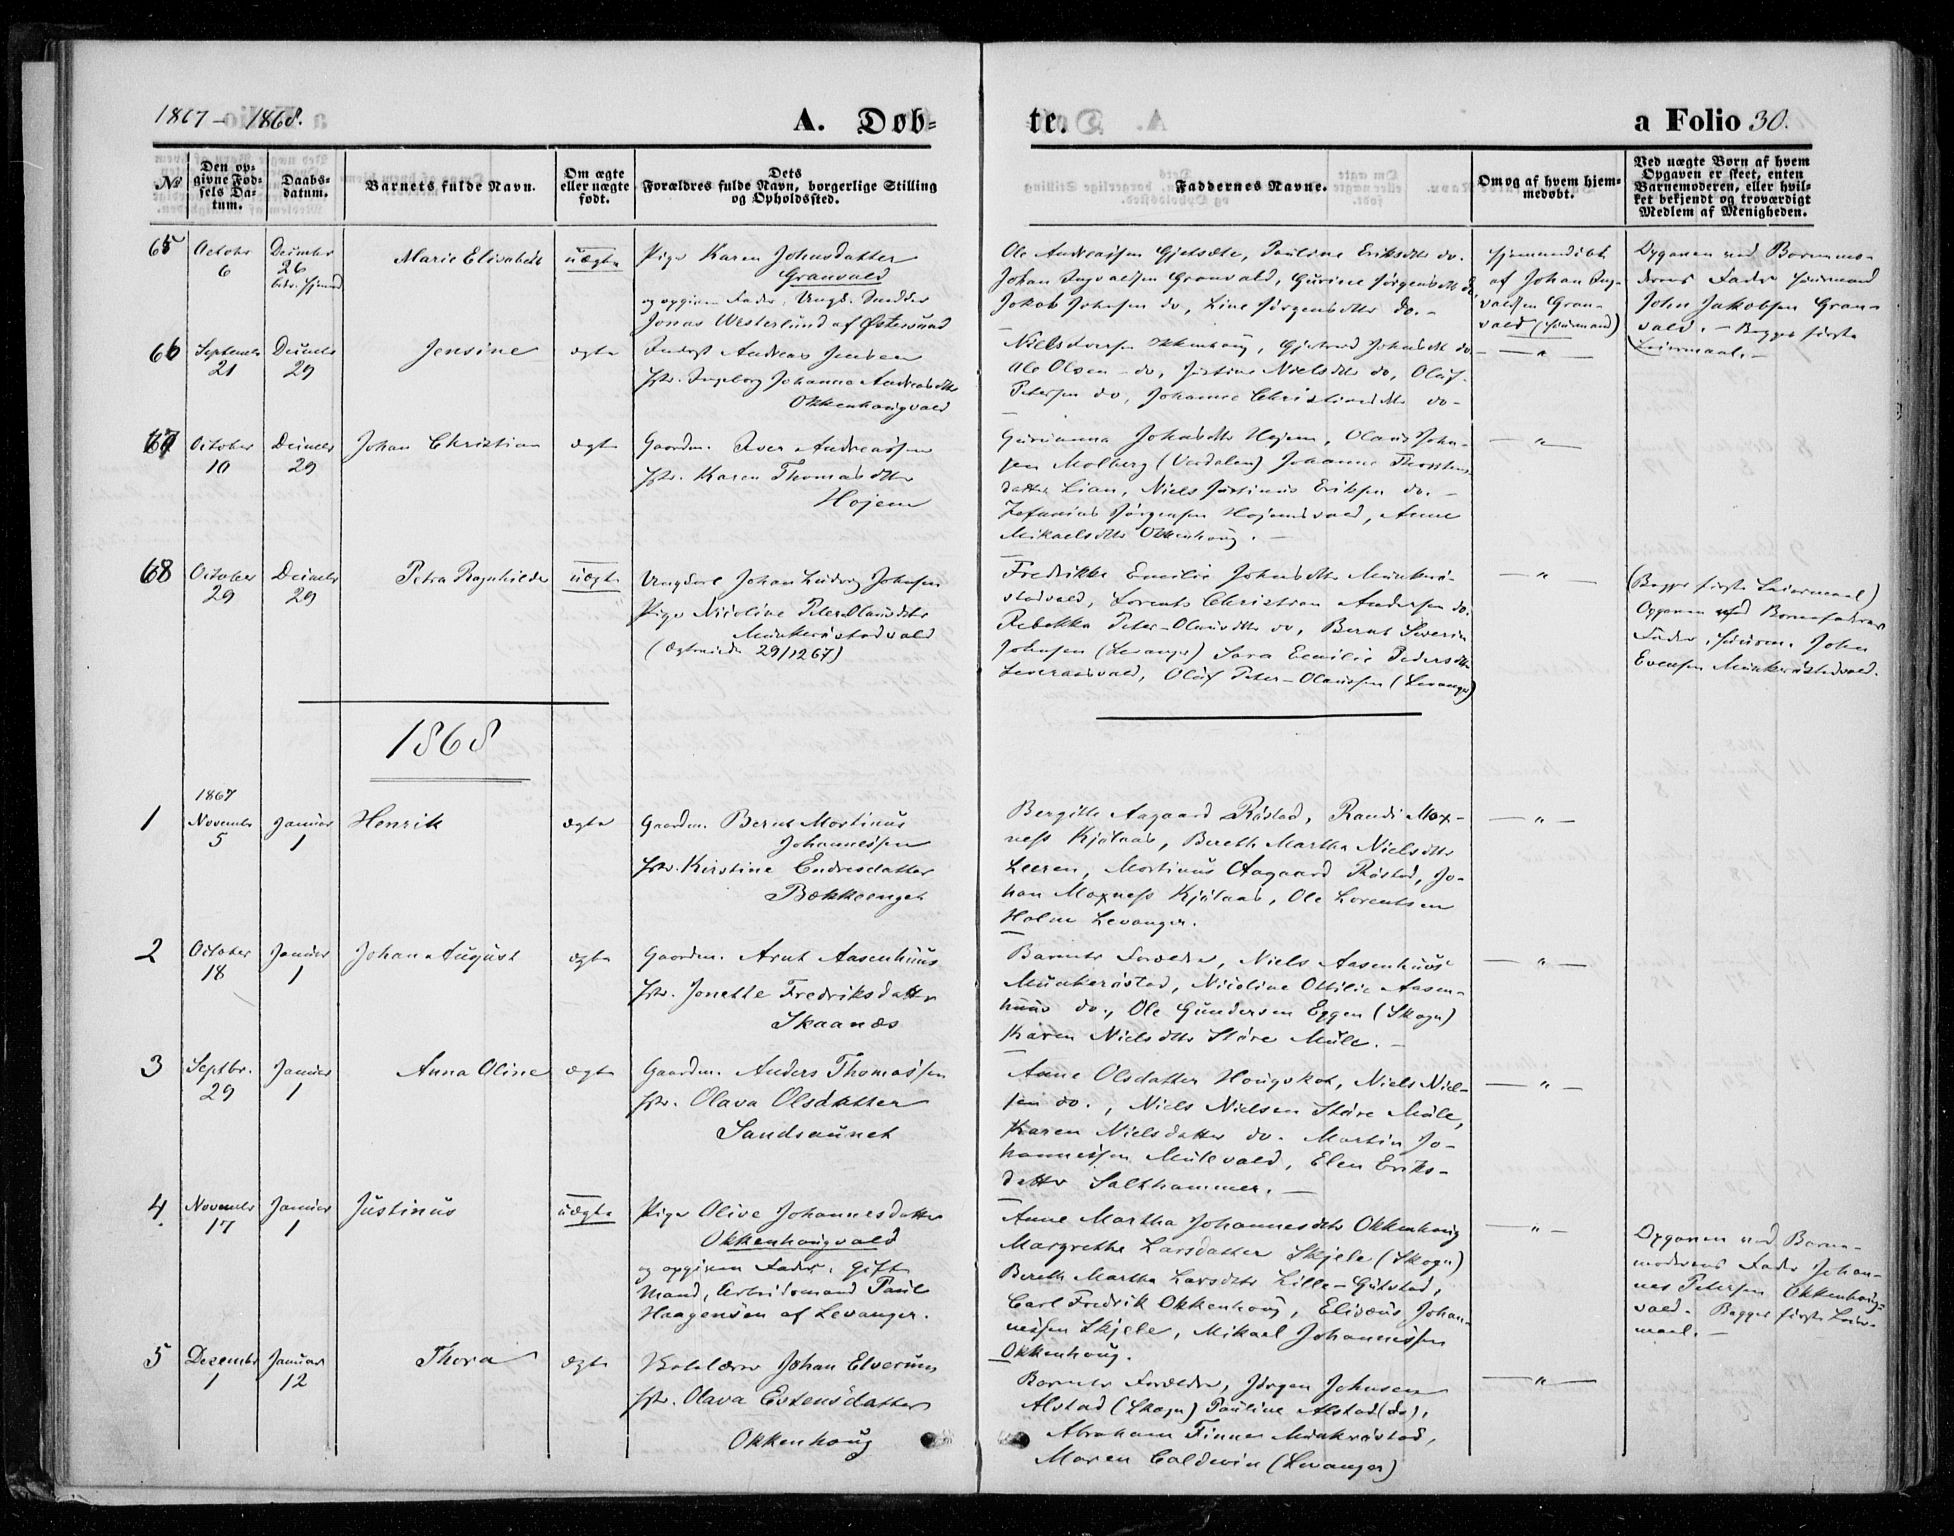 1867 - 1868.
A. Døb-
te.
a Folio 30.
No
Den op-
givne Fød-
sels Da-
tum.
Daabs-
datum.
Barnets fulde Navn.
Om ægte
eller uægte
født.
Dets
Forældres fulde Navn, borgerlige Stilling
og Opholdssted.
Faddernes Navne.
Om og af hvem hjem-
medøbt.
Ved uægte Børn af hvem
Opgaven er skeet, enten
Barnemoderen, eller hvil-
ket bekjendt og troværdigt
Medlem af Menigheden.
65
October
6
Decimber
26
Marie Elisabeth
uægte
Pige Karen Johnsdatter
Granvald
og opgiven Fader, Ungk. Smedds
Jonas Westerlund af Østersund
Ole Andreassen Gjelsæte, Pauline Eriksdttr do.
Johan Ingvaldsen Granvald, Gurine Jørgensdttr do
Jakob Johnsen do, Line Jørgensdttr do. -
Hjemmedøbt
af Johan Ing-
valdsen Gran-
vald (Huusmand)
Opgaven ved Barnemo-
derens Fader Huusmand
John Jakobsen Gran-
vald. - Begges første
Leiermaal. -
66
September
21
Decimber
29
Jensine
ægte
Inderst Andreas Jensen
Hstr. Ingeborg Johanna Andreasdttr
Okkenhougvald
Niels Iversen Okkenhoug, Gjertrud Johnsdttr do
Ole Olsen do, Justine Nielsdttr do, Oluf
Petersen do, Johanna Christiansdttr do -
- " -
67
October
10
Decimber
29
Johan Christian
ægte
Gaardm. Iver Andreassen
Hstr. Karen Thomasdttr
Hojem
Gurianna Johnsdttr Hojem, Olaus John-
sen Molberg (Verdalen) Johanna Thorstens-
datter Lian, Niels Justinus Eriksen do. -
Zefanias Jørgensen Hojemsvald, Anne
Mikaelsdttr Okkenhoug. -
- " -
68
October
29
Decimber
29
Petra Ragnhilda
uægte
Ungkarl Johan Ludvig Johnsen
Pige Nicoline PeterOlausdttr
Munkerøstadvald
(Ægteviede 29/12 67)
Fredrikke Emilie Johnsdttr Munkerø-
stadvald, Lorents Christian Andersen do.
Rebekka Peter-Olausdttr do, Bernt Severin
Johnsen (Levanger) Sara Emilie Pedersdttr
Leveraasvald, Oluf Peter-Olaussen (Levanger)
- " -
(Begges første Leiermaal)
Opgaven ved Barnefaderens
Fader, Huusm. John
Evensen Munkerøstadvald.
1868
1
1867
November
5
Januar
1
Henrik
ægte
Gaardm. Bernt Martinus
Johannessen
Hstr. Kirstine Endresdatter
Bækkeenget
Bergitte Aagaard Røstad, Randi Mox-
ness Kjølaas, Bereth Martha Nielsdttr
Leeren, Martinus Aagaard Røstad, Jo-
han Moxness Kjølaas, Ole Lorentsen
Holm Levanger.
- " -
2
October
18
Januar
1
Johan August
ægte
Gaardm. Arnt Aasenhuus
Hstr. Jonette Fredriksdattr
Skaanæs
Barnets Forældre, Niels Aasenhuus
Munkerøstad, Nicoline Ottilie Aasen-
huus do., Ole Gundersen Eggen (Skogn)
Karen Nielsdttr Støre Mule. -
- " -
3
Septbr.
29
Januar
1
Anna Oline
ægte
Gaardm. Anders Thomassen
Hstr. Olava Olsdatter
Sandsaunet
Anne Olsdatter Hougskot, Niels Niel-
sen do., Niels Nielsen Støre Mule,
Karen Nielsdatter do. Martin Jo-
hannessen Mulevald, Elen Eriks-
dattr Salthammer. -
- " -
4.
November
17
Januar
1
Justinus
uægte
Pige Olive Johannesdatter
Okkenhougvald
og opgiven Fader: Gift
Mand, Arbeidsmand Paul
Haagensen af Levanger.
Anne Martha Johannesdttr Okkenhoug
Margrethe Larsdatter Skjele (Skogn)
Bereth Martha Larsdttr Lille-Gutstad,
Carl Fredrik Okkenhoug, Elisæus Johan-
nessen Skjele, Mikael Johannessen
Okkenhoug.
- " -
Opgaven ved Barne-
moderens Fader Johan-
nes Petersen Okkenhoug-
vald. Begges første Leier-
maal. -
5
Dezember
1
Januar
12
Thora
ægte
Skolelærer Johan Elverum
Hstr. Olava Estensdatter
Okkenhoug
Barnets Forældre, Jørgen Johnsen
Alstad (Skogn) Pauline Alstad (do),
Abraham Finne Munkerøstad,
Maren Caldevin (Levanger)
- " -